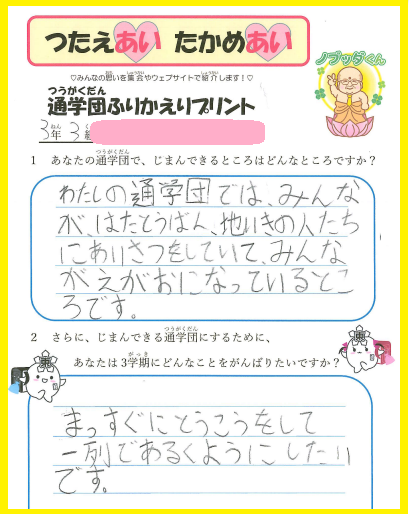 つたえあい たかめあい
♡みんなの思いを集会やウェブサイトで紹介します！♡
ノブッダくん
つうがくだん
通学団ふりかえりプリント
3年 3組
1 あなたの通学団で、じまんできるところはどんなところですか？
わたしの通学団では、みんな
が、はたとうばん、地いきの人たち
にあいさつをしていて、みんな
がえがおになっているとこ
ろです。
2 さらに、じまんできる通学団にするために、
あなたは3学期にどんなことをがんばりたいですか？
まっすぐにとうこうをして
一列であるくようにしたい
です。